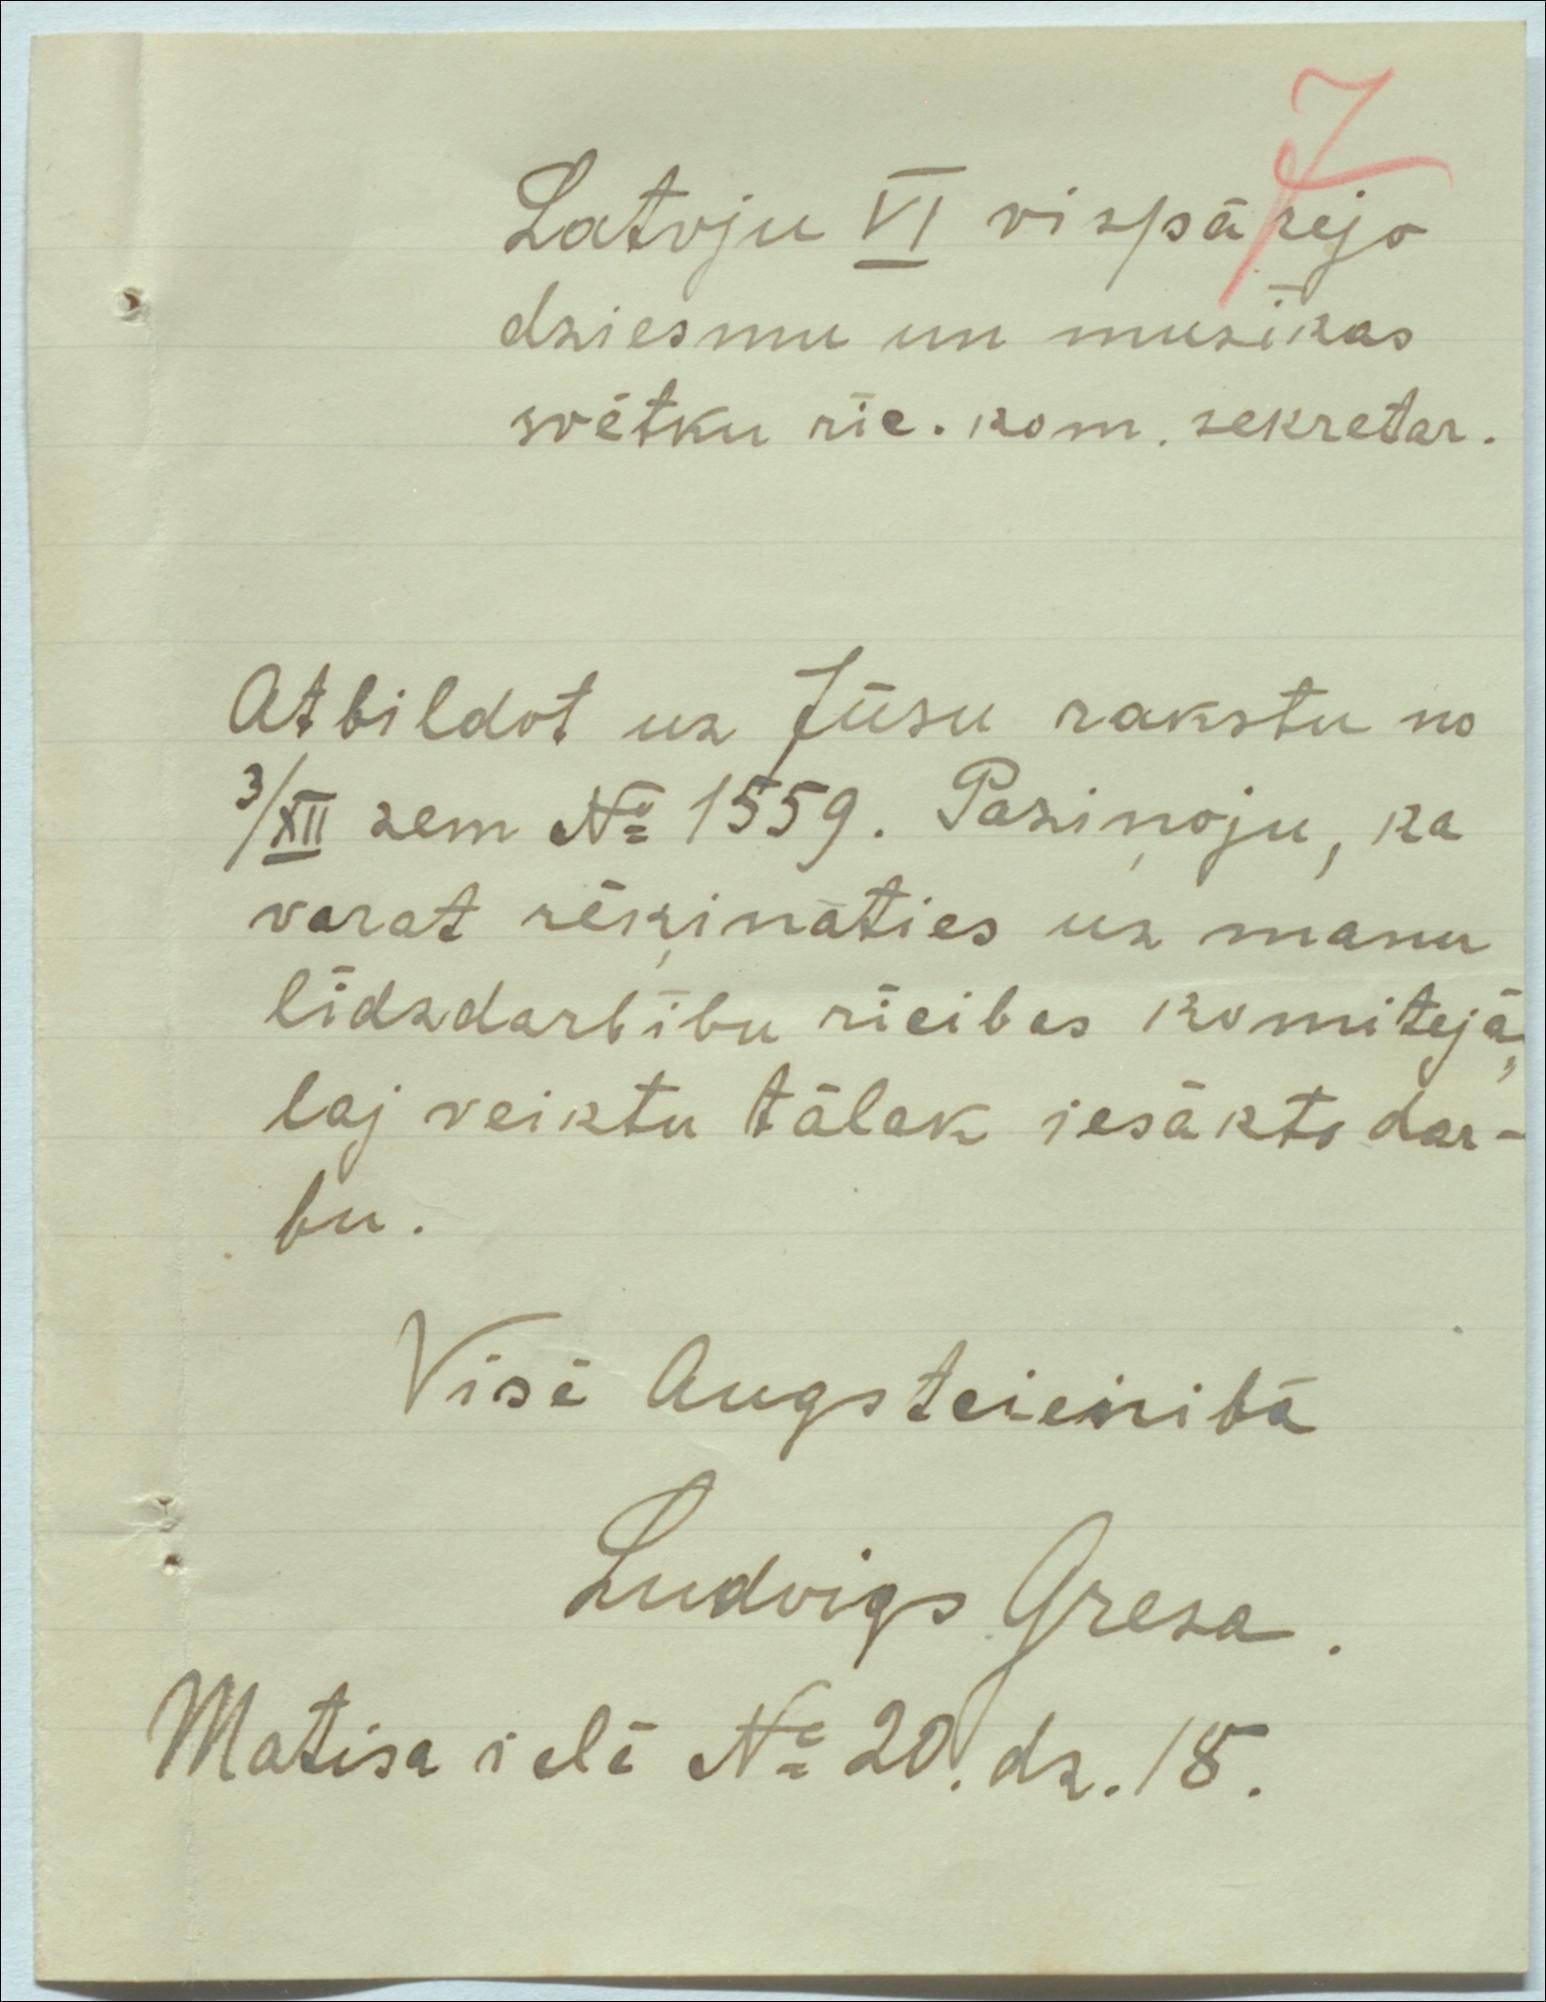 7
Latvju VI vispārejo
dziesmu un muzīkas
svētku rīc. kom. sekretar.
Atbildot uz Jūsu rakstu no
3/XII zem № 1559. Paziņoju, ka
varat rēķināties uz manu
līdzdarbību rīcibas komitejā,
laj veiktu tālak iesākto dar-
bu.
Visā Augstcienibā
Ludvigs Greza.
Matisa ielā № 20. dz. 18.